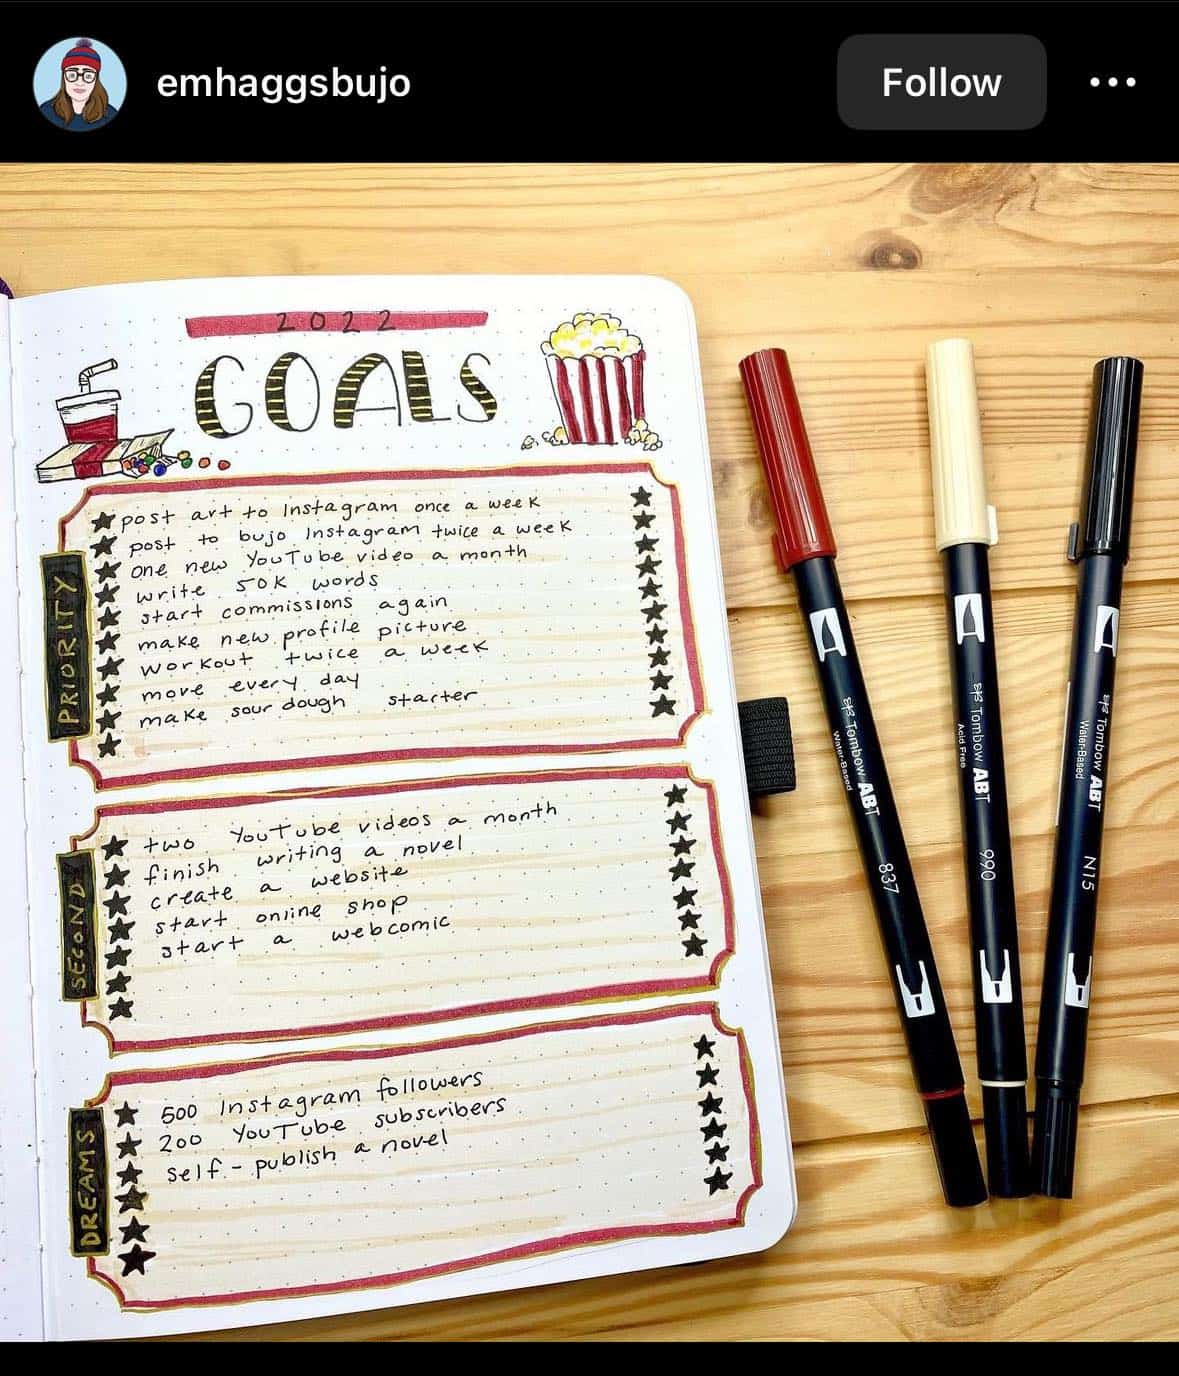 emhaggsbujo
Follow
2022
GOALS
PRIORITY
post art to Instagram once a week
post to bujo Instagram twice a week
one new YouTube video a month
write 50K words
start commissions again
make new profile picture
workout twice a week
move every day
make sour dough starter
SECOND
two YouTube videos a month
finish writing a novel
create a website
start online shop
start a webcomic
DREAMS
500 Instagram followers
200 YouTube subscribers
self-publish a novel
Tombow ABT
Water-Based
837
Tombow ABT
Acid Free
990
Tombow ABT
Water-Based
N15